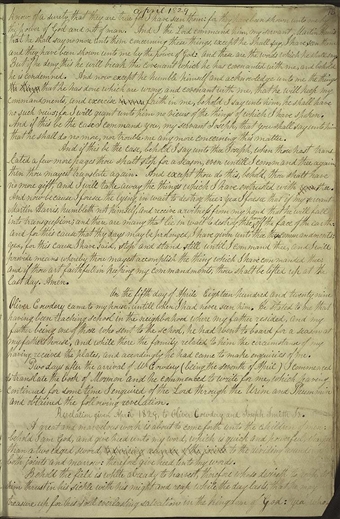 April 1829
know of a surety that they are true, for I have seen them: for they have been shown unto me
by the power of God and not of man. And I the Lord command him, my servant Martin Harris
that he shall say no more unto them concerning these things, except he shall say, I have seen them
and they have been shown unto me by the power of God, and these are the words which he shall say.
But if he deny this he will break the covenant which he has covenanted with me, and behold
he is condemned. And now except he humble himself and acknowledge unto me the things
that he has done which are wrong, and covenant with me, that he will keep my
commandments, and exercise faith in me, behold I say unto him, he shall have
no such views; for I will grant unto him no views of the things of which I have spoken.
And if this be the case I command you my servant Joseph, that you shall say unto him
that he shall do no more, nor trouble me any more concerning this matter.
And if this be the case, behold I say unto thee Joseph, when thou hast trans-
lated a few more pages thou shalt stop for a season, even until I command thee again
then thou mayest translate again. And except thou do this, behold thou shalt have
no more gift, and I will take away the things which I have entrusted with
And now because I foresee the lying in wait to destroy thee: yea I foresee that if my servant
Martin Harris humbleth not himself, and receive a witness from my hand, that he will fall
into transgression; and there are many that lie in wait to destroy thee off the face of the earth
and for this cause that thy days may be prolonged, I have given unto thee these commandments
yea, for this cause I have said, stop and stand still until I command thee, and I will
provide means whereby thou mayest accomplish the thing which I have commanded thee
and if thou art faithful in keeping my commandments, thou shalt be lifted up at the
last day. Amen.
On the fifth day of April Eighteen hundred and twenty nine
Oliver Cowdery came to my house, until when I had never seen him. He stated to me that
having been teaching school in the neighborhood where my father resided, and my
father being one of those who sent to the school, he had went to board for a season at
my father's house, and while there the family related to him the circumstance of my
having received the plates, and accordingly he had came to make enquiries of me.
Two days after the arrival of Mr Cowdery (being the seventh of April) I commenced
to translate the book of Mormon and he commenced to write for me, which having
continued for some time I enquired of the Lord through the Urim and Thummim
and obtained the following revelation.
Revelation given April 1829, to Oliver Cowdery and Joseph Smith Jr.
A great and marvelous work is about to come forth unto the children
behold I am God, and give heed unto my word, which is quick and powerful, sharper
than a two edged sword, to the dividing asunder of
both joints and marrow: therefore give heed unto my words.
Behold the field is white already to harvest, therefore whoso desireth to reap
him thrust in his sickle with his might and reap while the day lasts, that he may
treasure up for his soul everlasting salvation in the kingdom of God: yea who